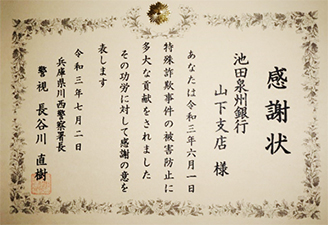 感謝状
池田泉州銀行
山下支店 様
あなたは令和三年六月一日
特殊詐欺事件の被害防止に
多大な貢献をされました
その功労に対して感謝の意を
表します
令和三年七月二日
兵庫県川西警察署長
警視 長谷川 直樹